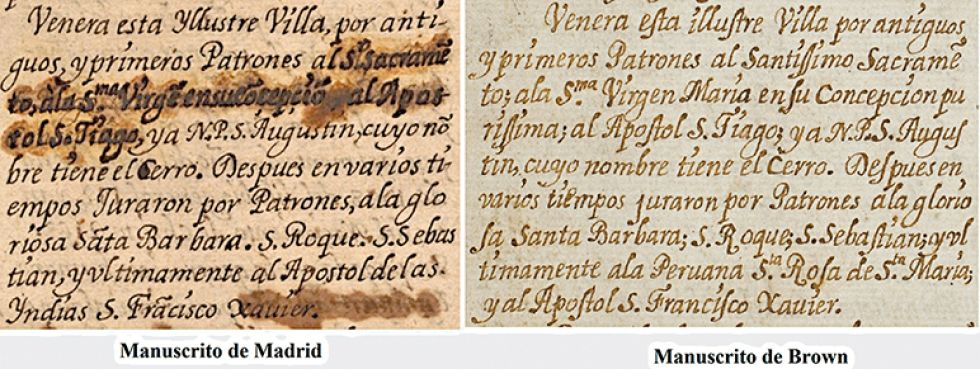 Venera esta Yllustre Villa, por anti-
guos, y primeros Patrones al S.r Sacramē
to, ala S.ma Virgē ensucōcepciō y al Apos-
tol S. Tiago, y a N.P.S. Augustin, cuyo nō
bre tiene el Cerro. Despues en varios ti-
empos Juraron por Patrones, ala glo
riosa Sāta Barbara. S. Roque. S. Sebas
tian, y vltimamente al Apostol de las
Yndias S. Frācisco Xauier.
Manuscrito de Madrid
Venera eſta illuſtre Villa por antiguos
y primeros Patrones al Santiſſimo Sacramē
to; ala S.ma Virgen Maria en ſu Concepcion pu
riſſima; al Apoſtol S. Tiago; y a N.P.S. Auguſ
tin, cuyo nombre tiene el Cerro. Deſpues en
varios tiempos juraron por Patrones ala glorio
ſa Santa Barbara; S. Roque; S. Sebaſtian; y vl
timamente ala Peruana S.ta Roſa de S.ta Maria;
y al Apoſtol S. Franciſco Xauier.
Manuscrito de Brown